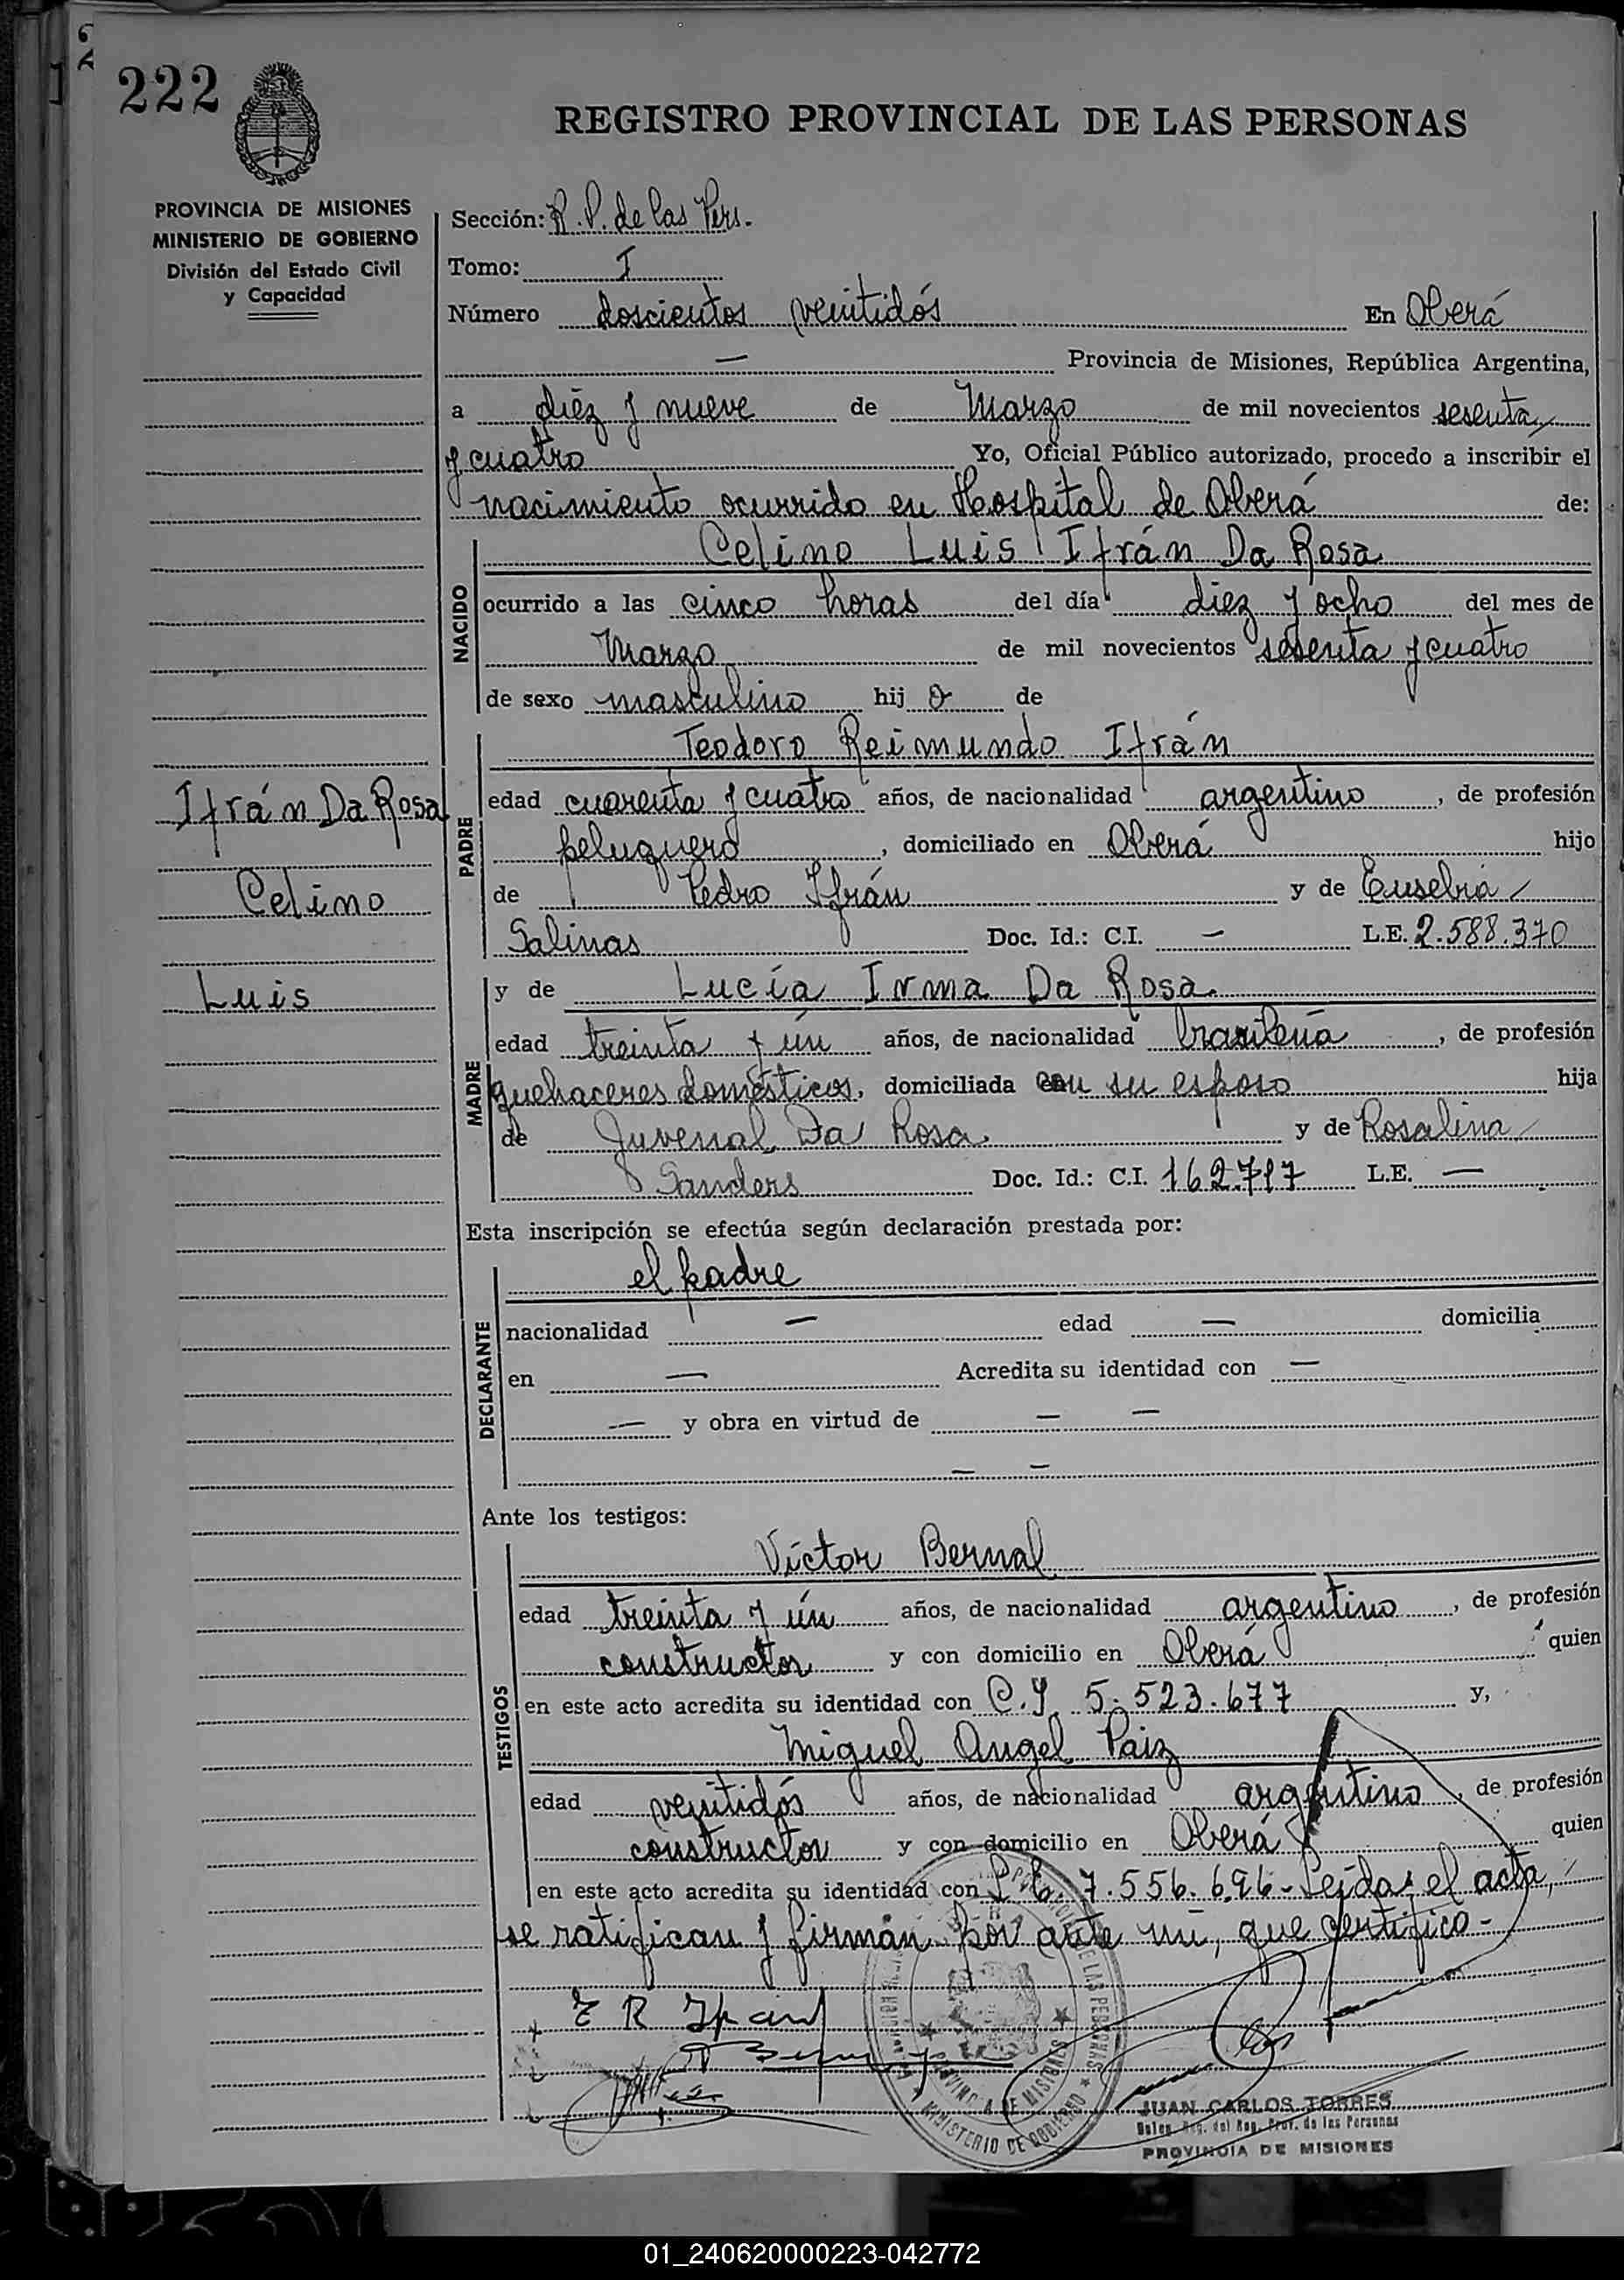 2
1
222
REGISTRO PROVINCIAL DE LAS PERSONAS
PROVINCIA DE MISIONES
MINISTERIO DE GOBIERNO
División del Estado Civil
y Capacidad
Sección: R. P. de las Pers.
Tomo: I
Número doscientos veintidós En Oberá
— Provincia de Misiones, República Argentina,
a diéz y nueve de Marzo de mil novecientos sesenta
y cuatro Yo, Oficial Público autorizado, procedo a inscribir el
nacimiento ocurrido en Hospital de Oberá de:
NACIDO
Celino Luis Ifrán Da Rosa
ocurrido a las cinco horas del día diez y ocho del mes de
Marzo de mil novecientos sesenta y cuatro
de sexo masculino hij o de
PADRE
Teodoro Reimundo Ifrán
Ifrán Da Rosa
Celino
Luis
edad cuarenta y cuatro años, de nacionalidad argentino, de profesión
peluquero, domiciliado en Oberá hijo
de Pedro Ifrán y de Eusebia
Salinas Doc. Id.: C.I. — L.E. 2.588.370
MADRE
y de Lucía Irma Da Rosa
edad treinta y ún años, de nacionalidad brasileña, de profesión
quehaceres domésticos, domiciliada con su esposo hija
de Juvenal Da Rosa y de Rosalina
Sanders Doc. Id.: C.I. 162.717 L.E. —
Esta inscripción se efectúa según declaración prestada por:
DECLARANTE
el padre
nacionalidad — edad — domicilia
en — Acredita su identidad con —
— y obra en virtud de — —
— —
Ante los testigos:
TESTIGOS
Víctor Bernal
edad treinta y ún años, de nacionalidad argentino, de profesión
constructor y con domicilio en Oberá quien
en este acto acredita su identidad con C.I. 5.523.677 y,
Miguel Angel Paiz
edad veintidós años, de nacionalidad argentino, de profesión
constructor y con domicilio en Oberá quien
en este acto acredita su identidad con L.E. 7.556.696 - Leída el acta,
se ratifican y firmán por ante mi, que certifico -
E R Ifran
DE LAS PERSONAS
PROVINCIA DE MISIONES
MINISTERIO DE GOBIERNO
JUAN CARLOS TORRES
Deleg. Reg. del Reg. Prov. de las Personas
PROVINCIA DE MISIONES
01_240620000223-042772